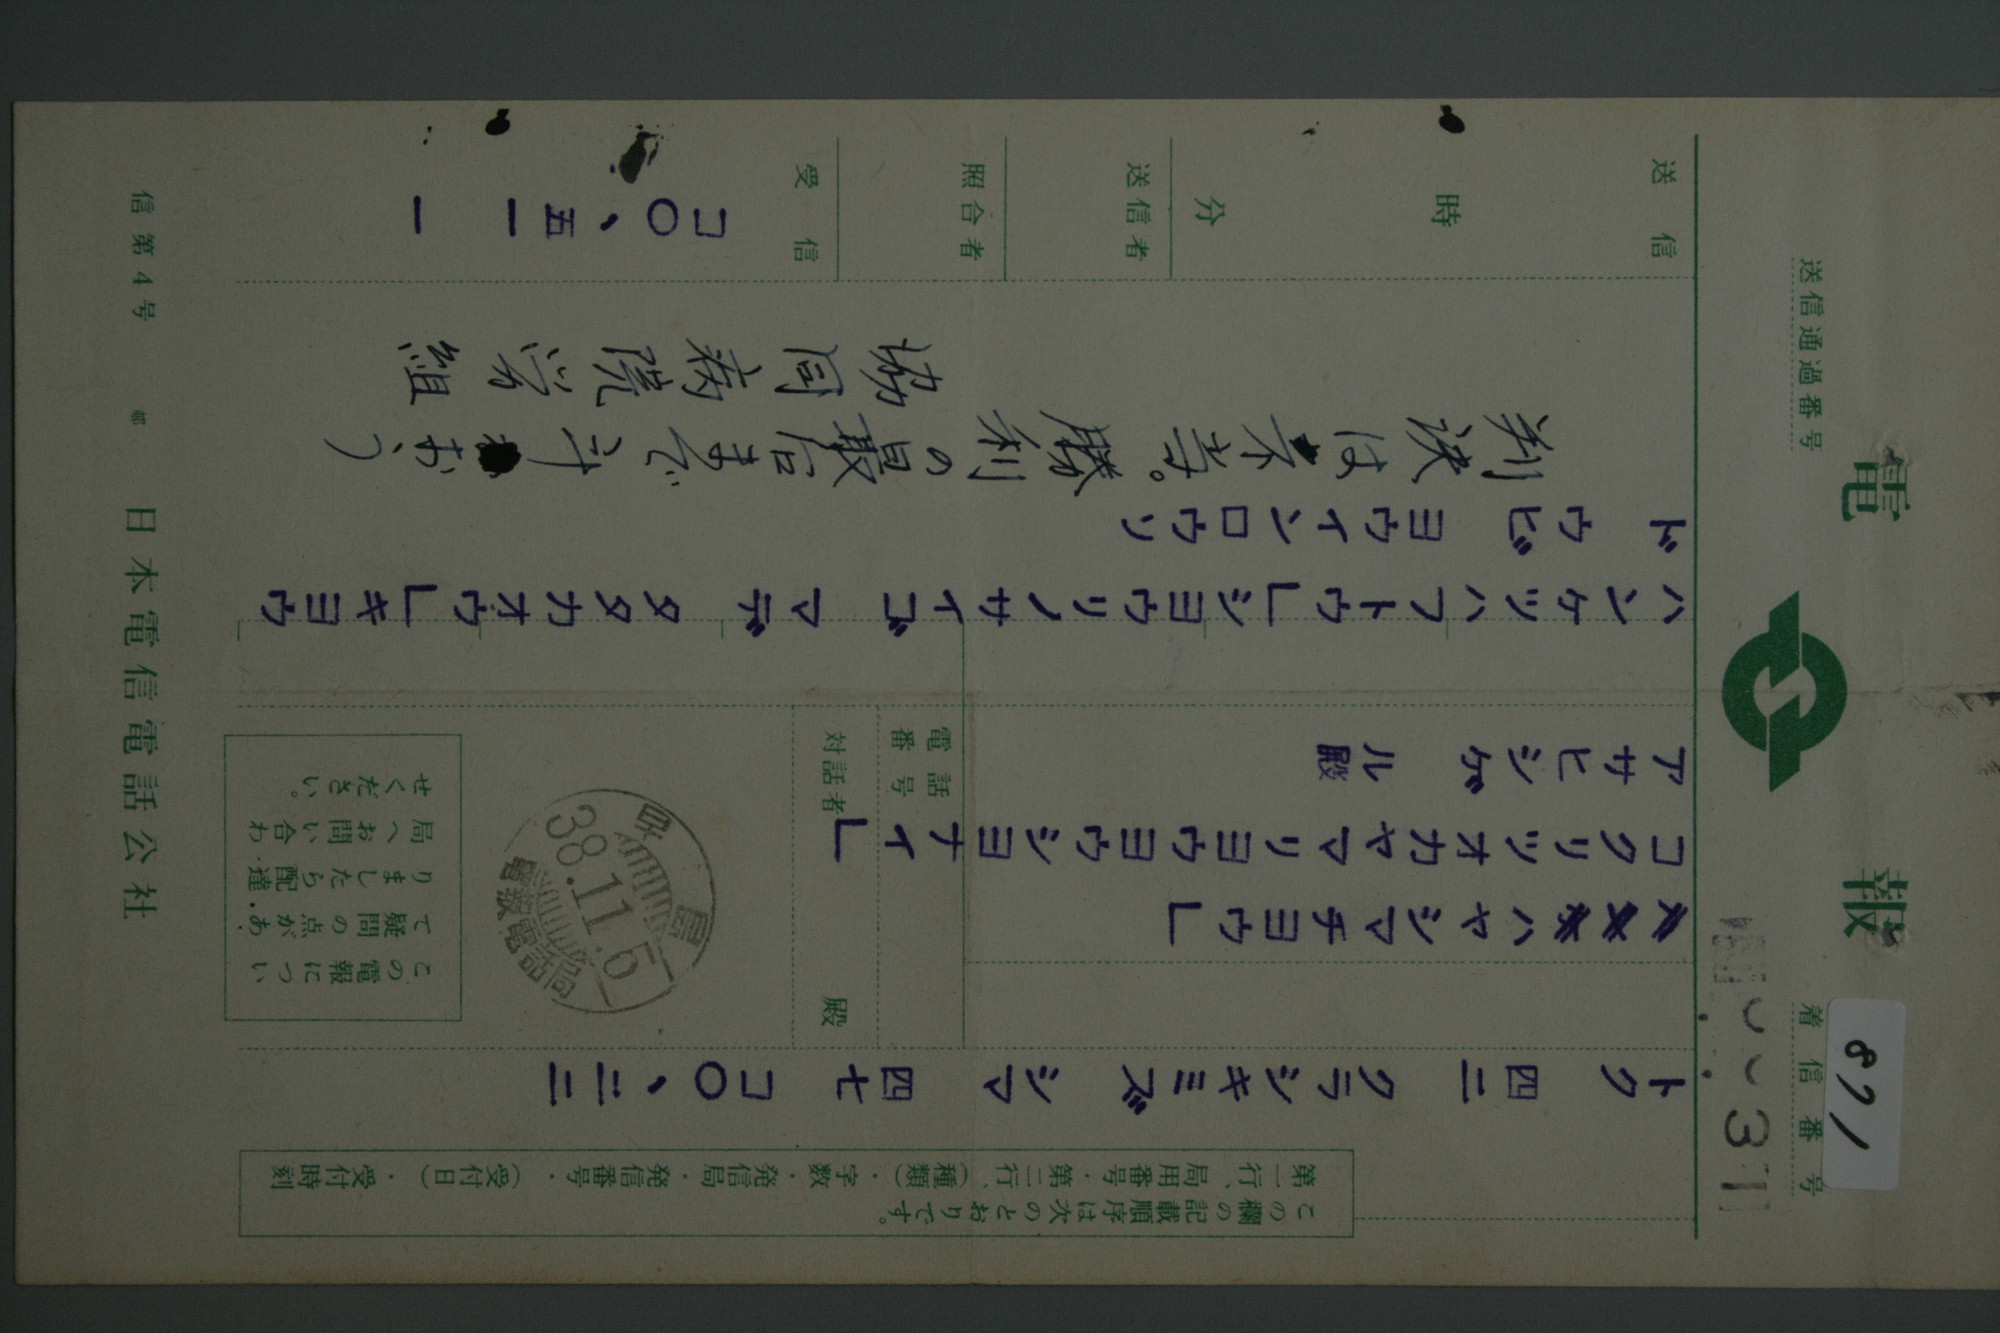 電報
着信番号
871
31
送信通過番号
この欄の記載順序は次のとおりです。
第一行、局用番号・第二行、(種類)・字数・発信局・発信番号・(受付日)・受付時刻
トク 四二 クラシキミズシマ 四七 コ〇、二二
ハヤシマチヨウ」
コクリツオカヤマリヨウヨウシヨナイ」
アサヒシゲル殿
電話番号
対話者
殿
早島
38.11.5
電報電話局
この電報につい
て疑問の点があ
りましたら配達
局へお問い合わ
せください。
ハンケツハフトウ」シヨウリノサイゴマデタタカオウ」キヨウ
ドウビヨウインロウソ
判決は不当。勝利の最后まで斗おう
協同病院労組
送信
時
分
送信者
照合者
受信
コ〇、五一 一
信第4号
日本電信電話公社